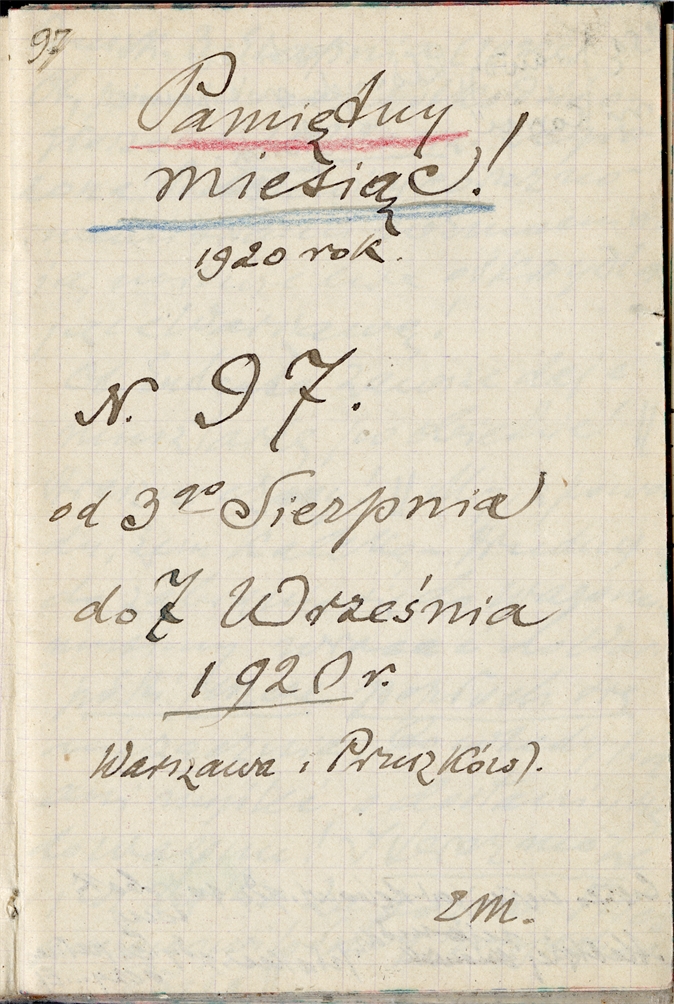 97
Pamiętny
miesiąc!
1920 rok.
N. 97.
od 3go Sierpnia
do 7 Września
1920 r.
Warszawa i Pruszków.
EM.